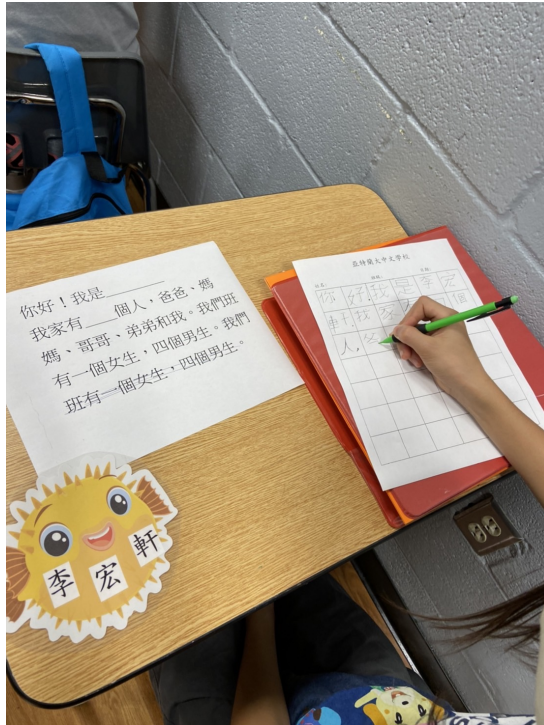 你好！我是________
我家有___個人，爸爸、媽
媽、哥哥、弟弟和我。我們班
有一個女生，四個男生。我們
班有一個女生，四個男生。
李宏軒
亞特蘭大中文學校
你好,我是李宏
軒我
個
人,